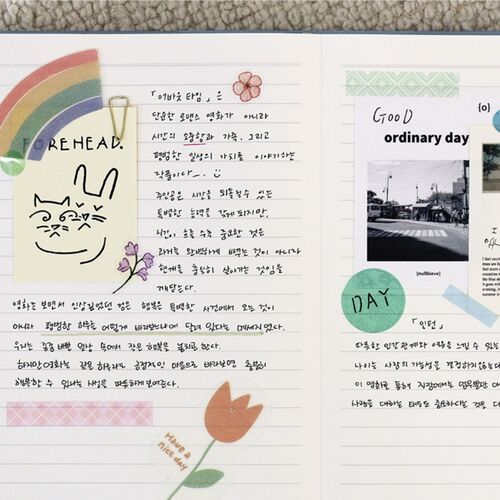 FOREHEAD.
「어바웃 타임」은
단순한 로맨스 영화가 아니라
시간의 소중함과 가족, 그리고
평범한 일상의 가치를 이야기하는
작품이다
주인공은 시간을 되돌릴 수 있는
특별한 능력을 갖게 되지만,
시간이 흐를수록 중요한 것은
과거를 완벽하게 바꾸는 것이 아니라
현재를 충실히 살아가는 것임을
깨닫는다.
영화를 보면서 인상깊었던 점은 행복은 특별한 사건에서 오는 것이
아니라 평범한 하루를 어떻게 바라보느냐에 달려 있다는 메세지였다.
우리는 종종 바쁜 일상 속에서 작은 행복을 놓치곤 한다.
하지만 영화는 같은 하루라도 긍정적인 마음으로 바라보면 충분히
행복할 수 있다는 사실을 따뜻하게 보여준다.
Have a
nice day
GOOD
{o}
ordinary day
[nullbieve]
DAY
「인턴」
다양한 인간관계와 여유를 느낄 수 있는
나이는 사람의 가능성을 결정하지 않는다
이 영화를 통해 직장에서는 업무뿐만
사람을 대하는 태도도 중요하다는 것을